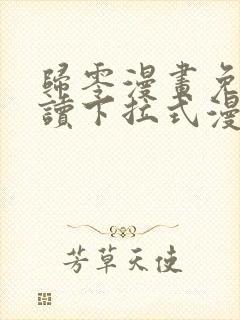 歸零漫畫免
讀下拉式漫
芳草天使